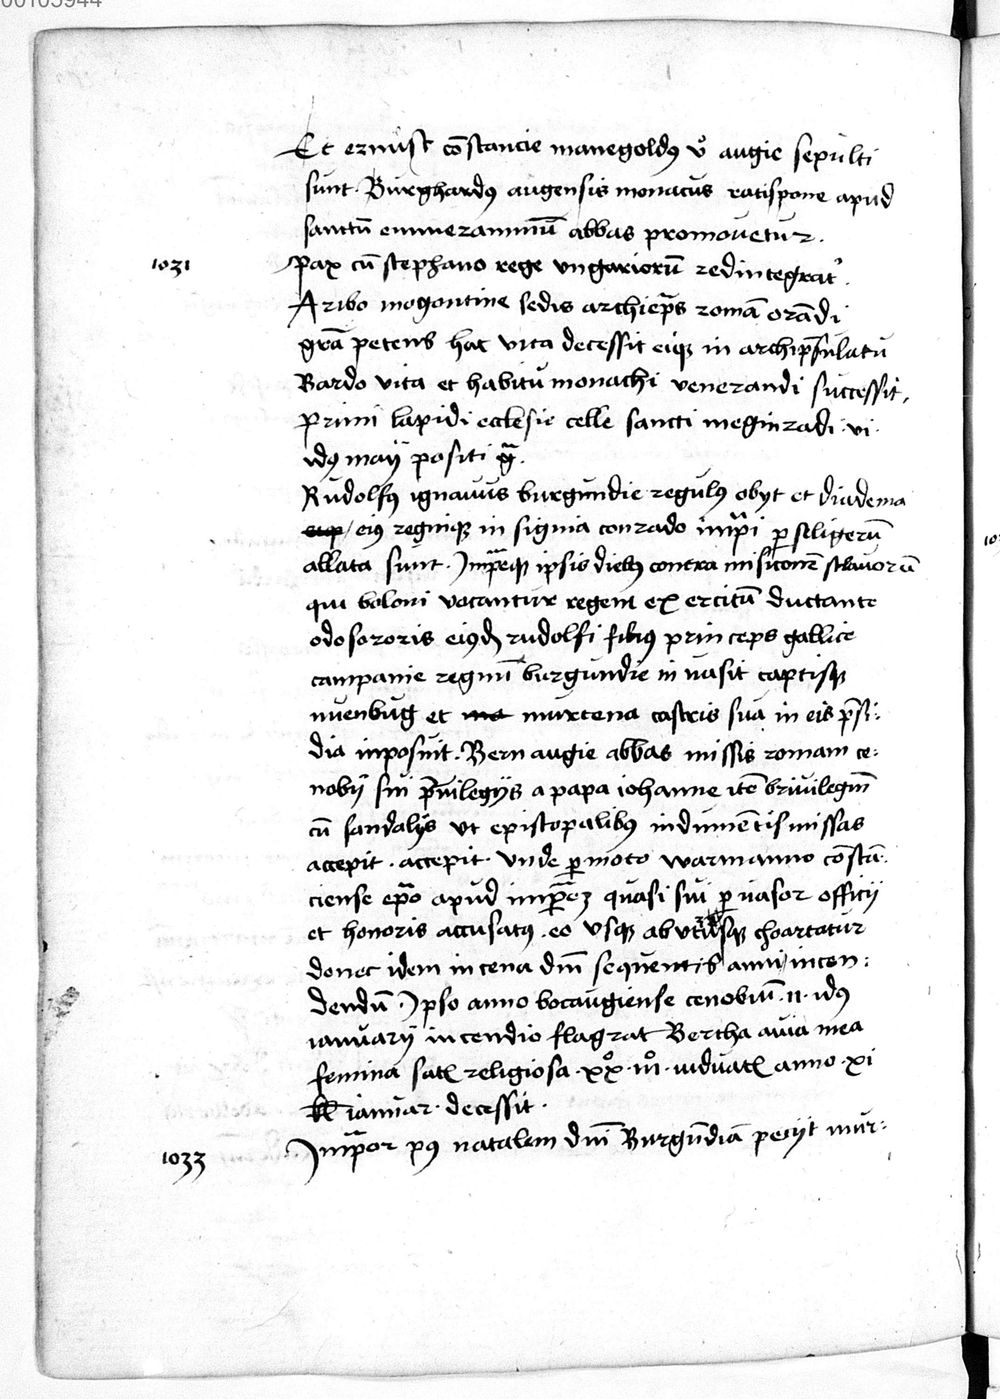 00105944
Et ernust cōstancie manegoldꝰ v̊ augie sepulti
sunt. Burghardꝰ augensis monacus ratispone apud
sanctū emmerammū abbas promouetur.
1031 Pax cū stephano rege vngariorū redintegrat᷑.
Aribo mogontine sedis archiep̄s romā orādi
grā petens hac vita decessit eiqꝫ in archip̄sulatu
Bardo vita et habitu monachi venerandi successit,
primi lapidi ecclesie celle sancti meginradi .vi.
idꝰ maij positi
Rudolfꝰ ignauus burgundie regulꝰ obyt et diadema
eiꝰ regniqꝫ in signia conrado imp̄i ꝑ seligerū
allata sunt. Imp̄eqꝫ ipsis diebꝫ contra misiconē sclauorū
qui boloni vocantur regem ex ercitū ductante
odo sororis eiꝰdē rudolfi filiꝰ princeps gallice
campanie regnū burgundie in uasit captisqꝫ
nuenbug et murtena castris sua in eis p̄si:
dia inposuit. Bern augie abbas missis romam ce:
nobij sui p̄uilegijs a papa iohanne itē briuilegiū
cū sandalijs vt episcopalibꝰ indumētis missas
accepit . accepit . vnde ꝑ moto warmanno cōstā:
ciense ep̄o apud imp̄eꝫ quasi sui ꝑ uasor officij
et honoris accusatꝰ . eo vsqꝫ ab vtrisqꝫ choartatur
donec idem in cena dn̄i sequentis anni / incen:
dendū. Ipso anno bocaugiense cenobiū .II. idꝰ
ianuarij incendio flagrat Bertha auia mea
femina satꝭ religiosa .xx̊. iii̊. uiduatꝭ anno .xi
kł ianuar. decessit.
1033 Imp̄or pꝰ natalem dn̄i Burgūdiā petijt mur: